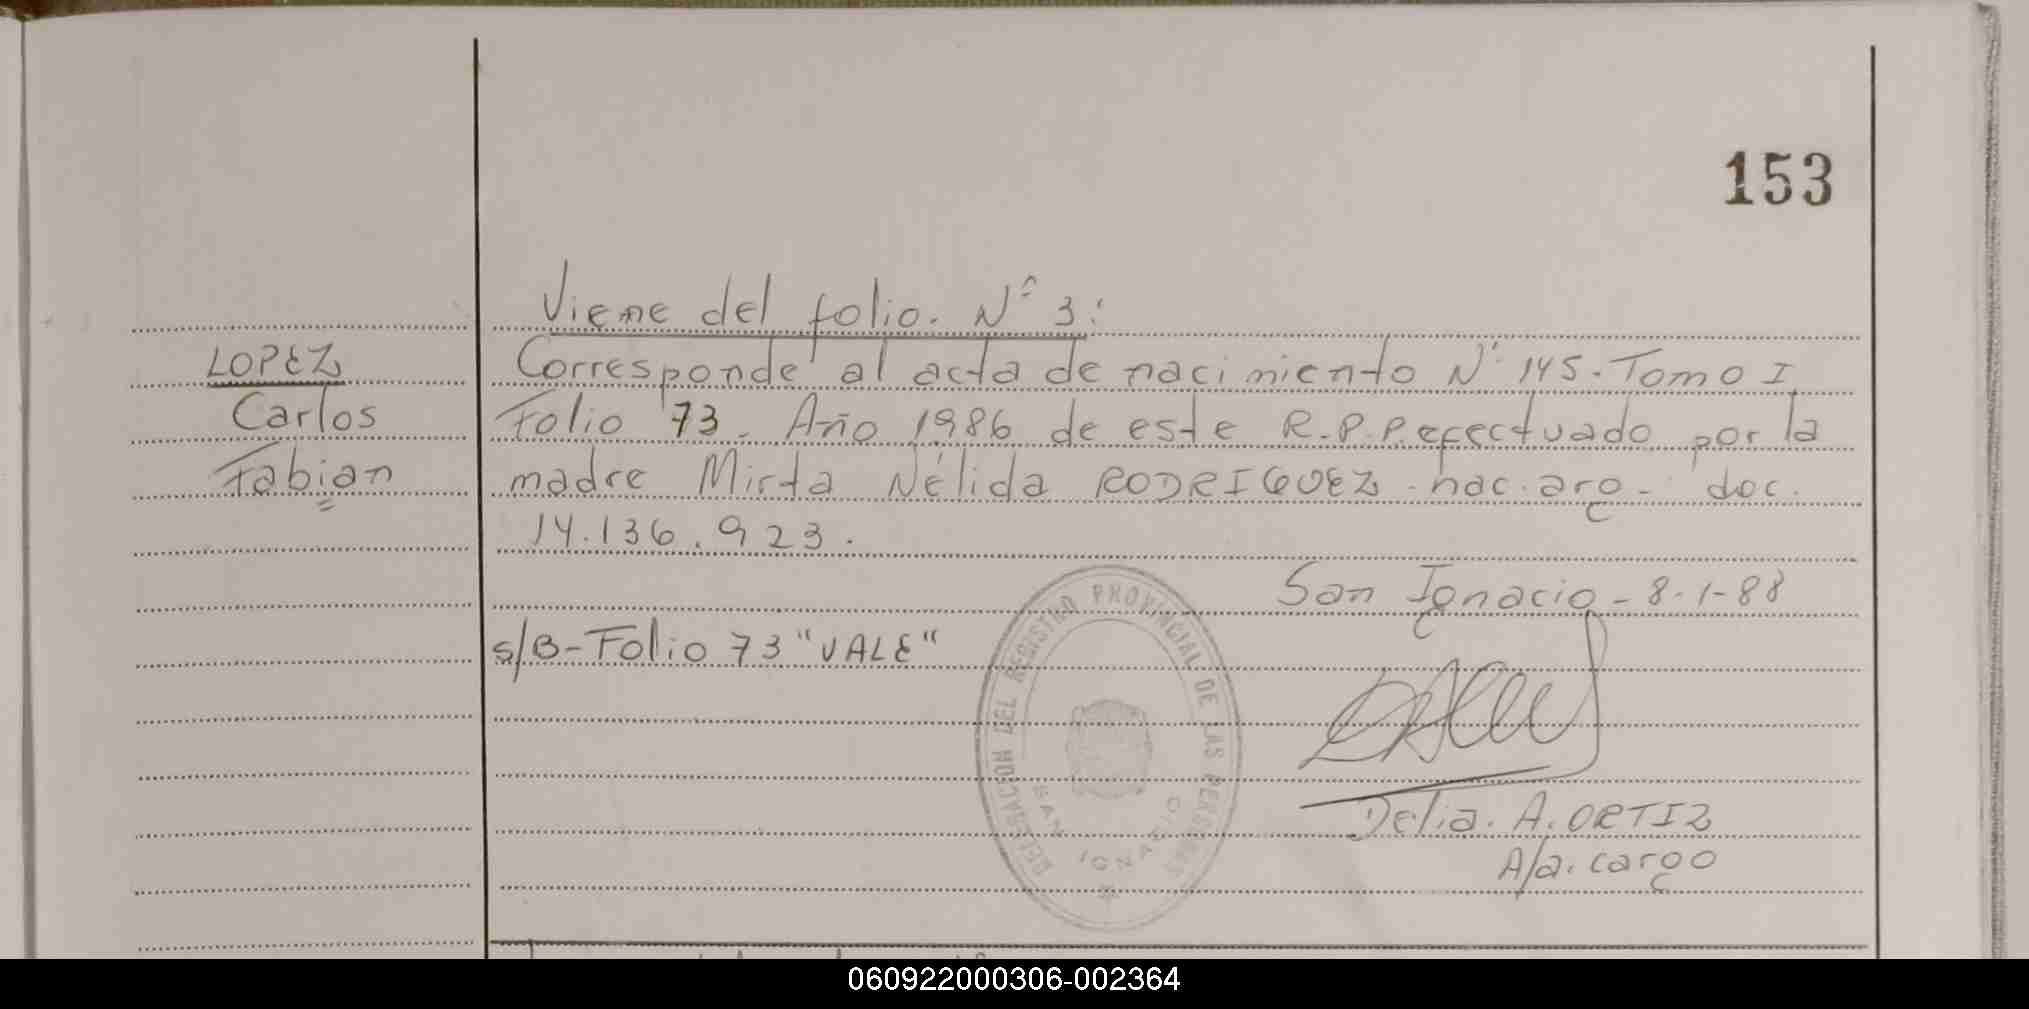 153
Viene del folio. Nº 3:
LOPEZ
Carlos
Fabian
Corresponde al acta de nacimiento Nº 145. Tomo I
Folio 73. Año 1986 de este R.P.P. efectuado por la
madre Mirta Nélida RODRIGUEZ - nac. arg - doc.
14.136.923.
San Ignacio - 8-1-88
s/B-Folio 73 "VALE"
DELEGACION DEL REGISTRO PROVINCIAL DE LAS PERSONAS
SAN IGNACIO
Delia. A. ORTIZ
A/a. cargo
060922000306-002364